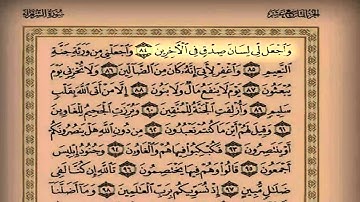 سورة الشعراء
الجزء التاسع عشر
وَٱجْعَل لِّى لِسَانَ صِدْقٍ فِى ٱلْـَٔاخِرِينَ ٨٤ وَٱجْعَلْنِى مِن وَرَثَةِ جَنَّةِ
ٱلنَّعِيمِ ٨٥ وَٱغْفِرْ لِأَبِىٓ إِنَّهُۥ كَانَ مِنَ ٱلضَّآلِّينَ ٨٦ وَلَا تُخْزِنِى يَوْمَ
يُبْعَثُونَ ٨٧ يَوْمَ لَا يَنفَعُ مَالٌ وَلَا بَنُونَ ٨٨ إِلَّا مَنْ أَتَى ٱللَّهَ بِقَلْبٍ
سَلِيمٍ ٨٩ وَأُزْلِفَتِ ٱلْجَنَّةُ لِلْمُتَّقِينَ ٩٠ وَبُرِّزَتِ ٱلْجَحِيمُ لِلْغَاوِينَ
٩١ وَقِيلَ لَهُمْ أَيْنَ مَا كُنتُمْ تَعْبُدُونَ ٩٢ مِن دُونِ ٱللَّهِ هَلْ يَنصُرُونَكُمْ
أَوْ يَنتَصِرُونَ ٩٣ فَكُبْكِبُوا۟ فِيهَا هُمْ وَٱلْغَاوُۥنَ ٩٤ وَجُنُودُ إِبْلِيسَ
أَجْمَعُونَ ٩٥ قَالُوا۟ وَهُمْ فِيهَا يَخْتَصِمُونَ ٩٦ تَٱللَّهِ إِن كُنَّا لَفِى
ضَلَـٰلٍ مُّبِينٍ ٩٧ إِذْ نُسَوِّيكُم بِرَبِّ ٱلْعَـٰلَمِينَ ٩٨ وَمَآ أَضَلَّنَآ